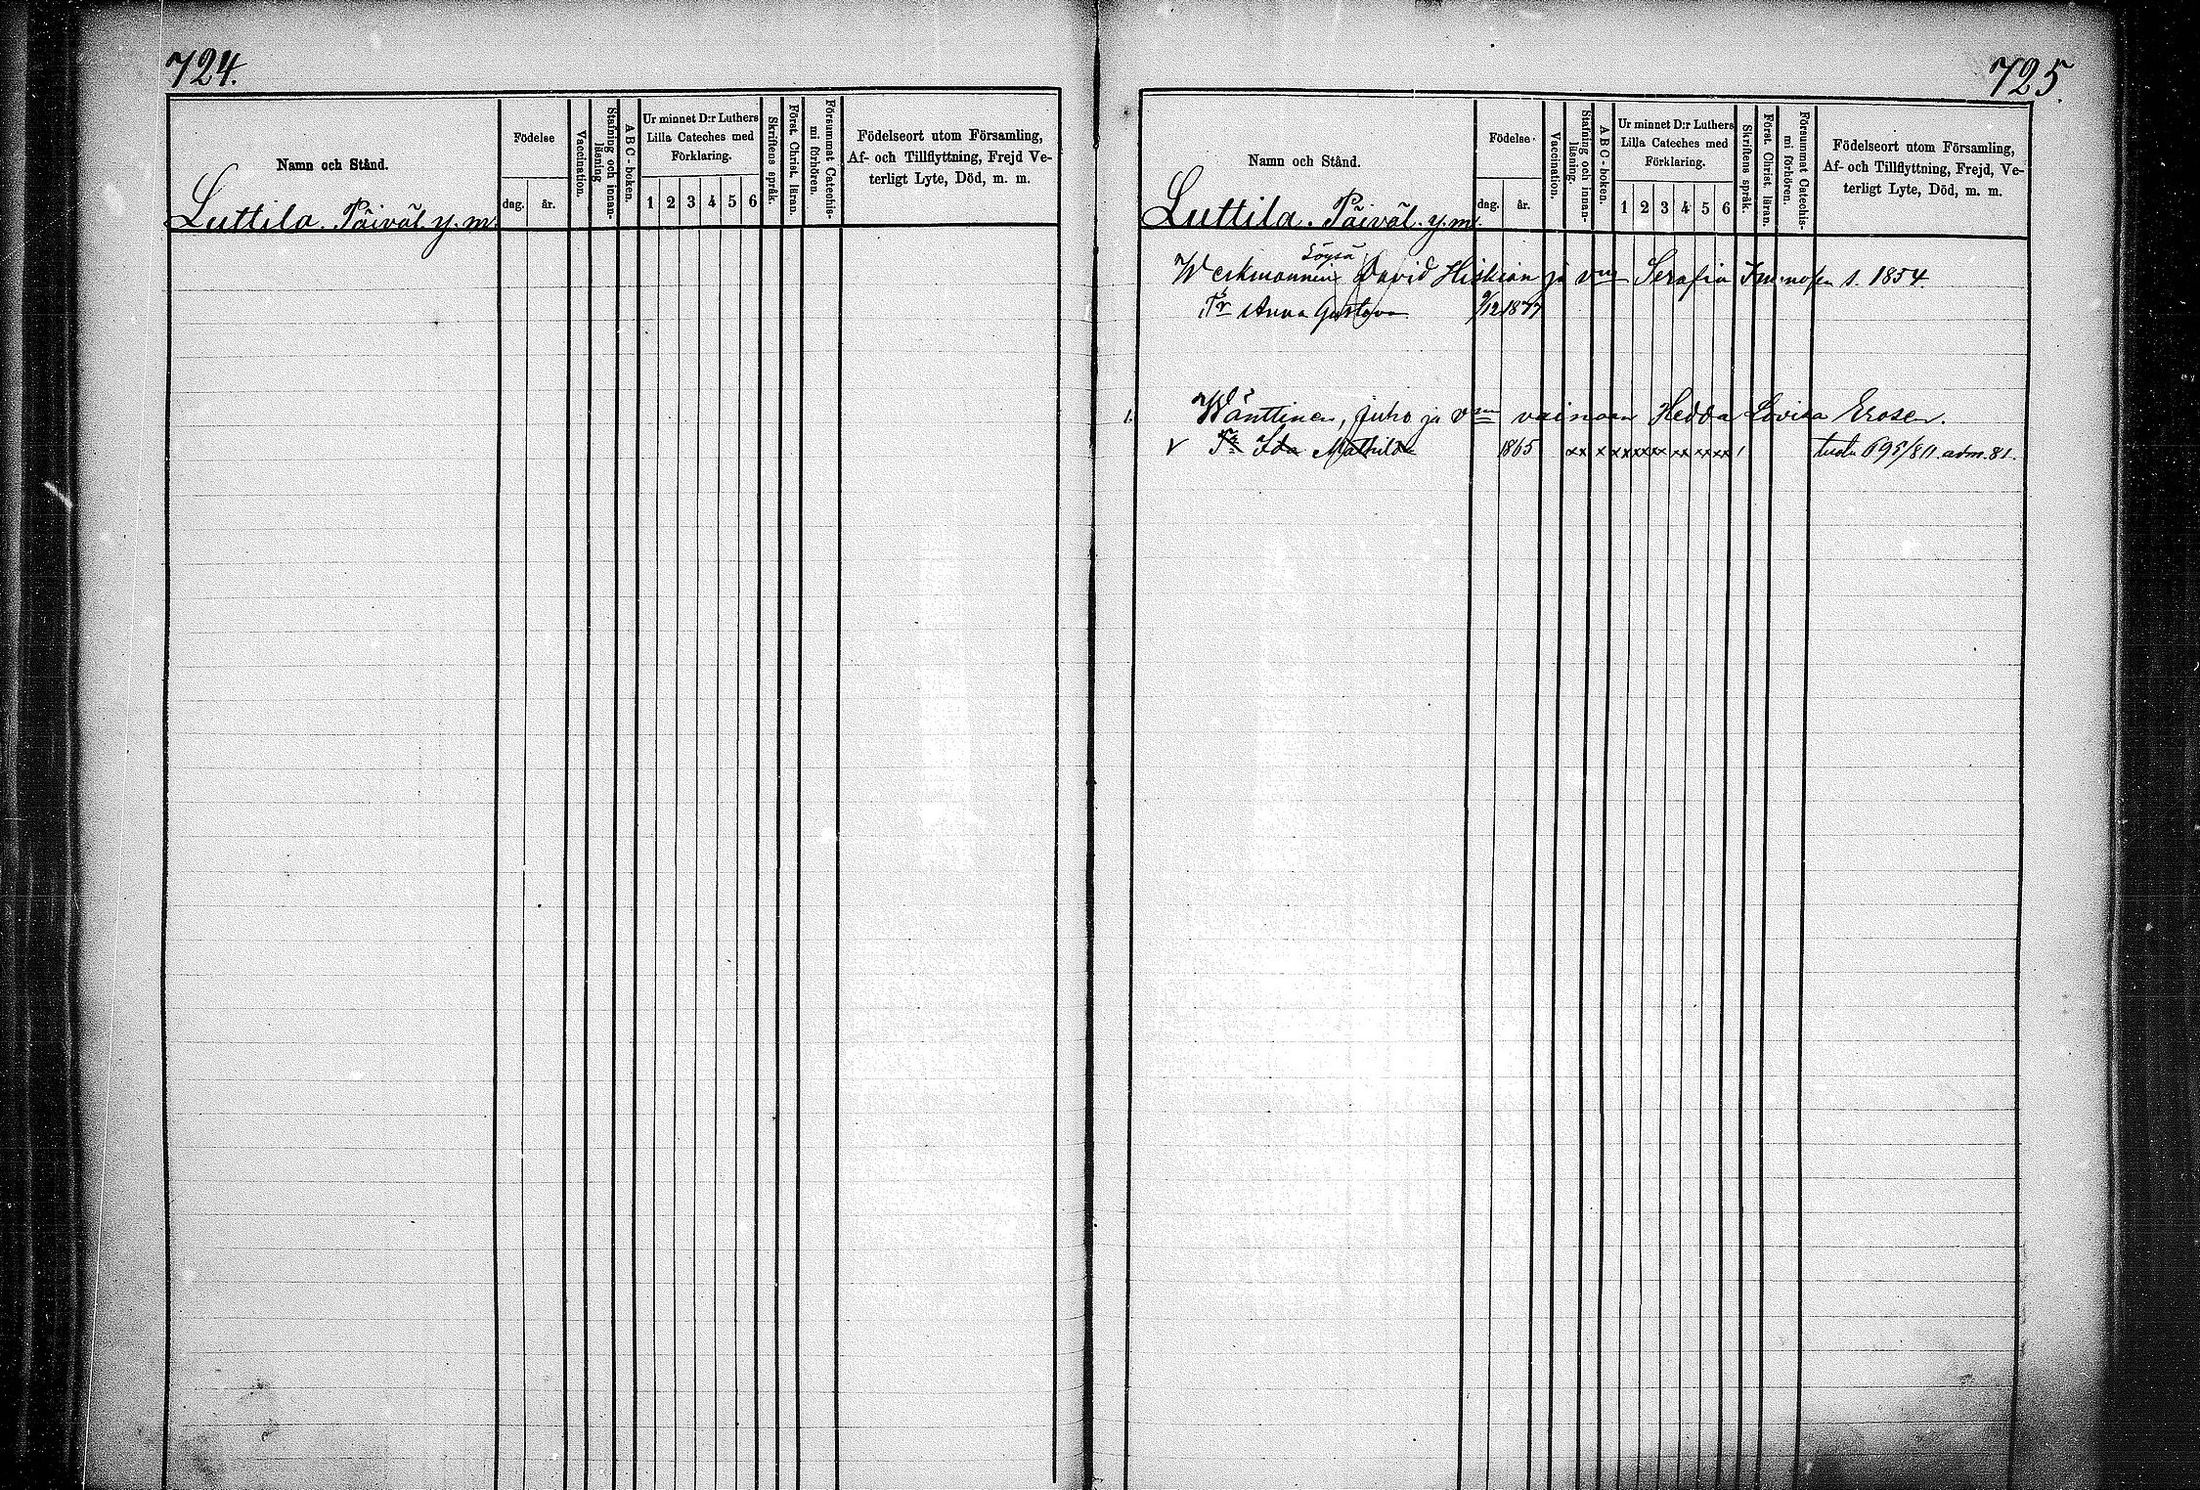 724.
Namn och Stånd.
Luttila. Päiväl. y. m.
Födelse
dag.
år.
Vaccination.
Stafning och innan-
läsning
ABC-boken.
Ur minnet D:r Luthers
Lilla Cateches med
Förklaring.
1 2 3 4 5 6
Skriftens språk.
Först. Christ. läran.
Försummat Catechis-
mi förhören.
Födelseort utom Församling,
Af- och Tillflyttning, Frejd Ve-
terligt Lyte, Död, m. m.
725.
Namn och Stånd.
Luttila. Päiväl. y. m.
Födelse
dag.
år.
Vaccination.
Stafning och innan-
läsning.
ABC-boken.
Ur minnet D:r Luthers
Lilla Cateches med
Förklaring.
1 2 3 4 5 6
Skriftens språk.
Först. Christ. läran.
Försummat Catechis-
mi förhören.
Födelseort utom Församling,
Af- och Tillflyttning, Frejd, Ve-
terligt Lyte, Död, m. m.
Löysä
David Hiskian ja Serafia s. 1854.
Tr Anna Gustava 9/12 1877
1. Wänttinen, Juho ja vainaan Hedda Lovisa Erosen.
v Tr Ida Mathilda 1865 xx x xx xx xx xx xx xx 1 695/811. adm. 81.